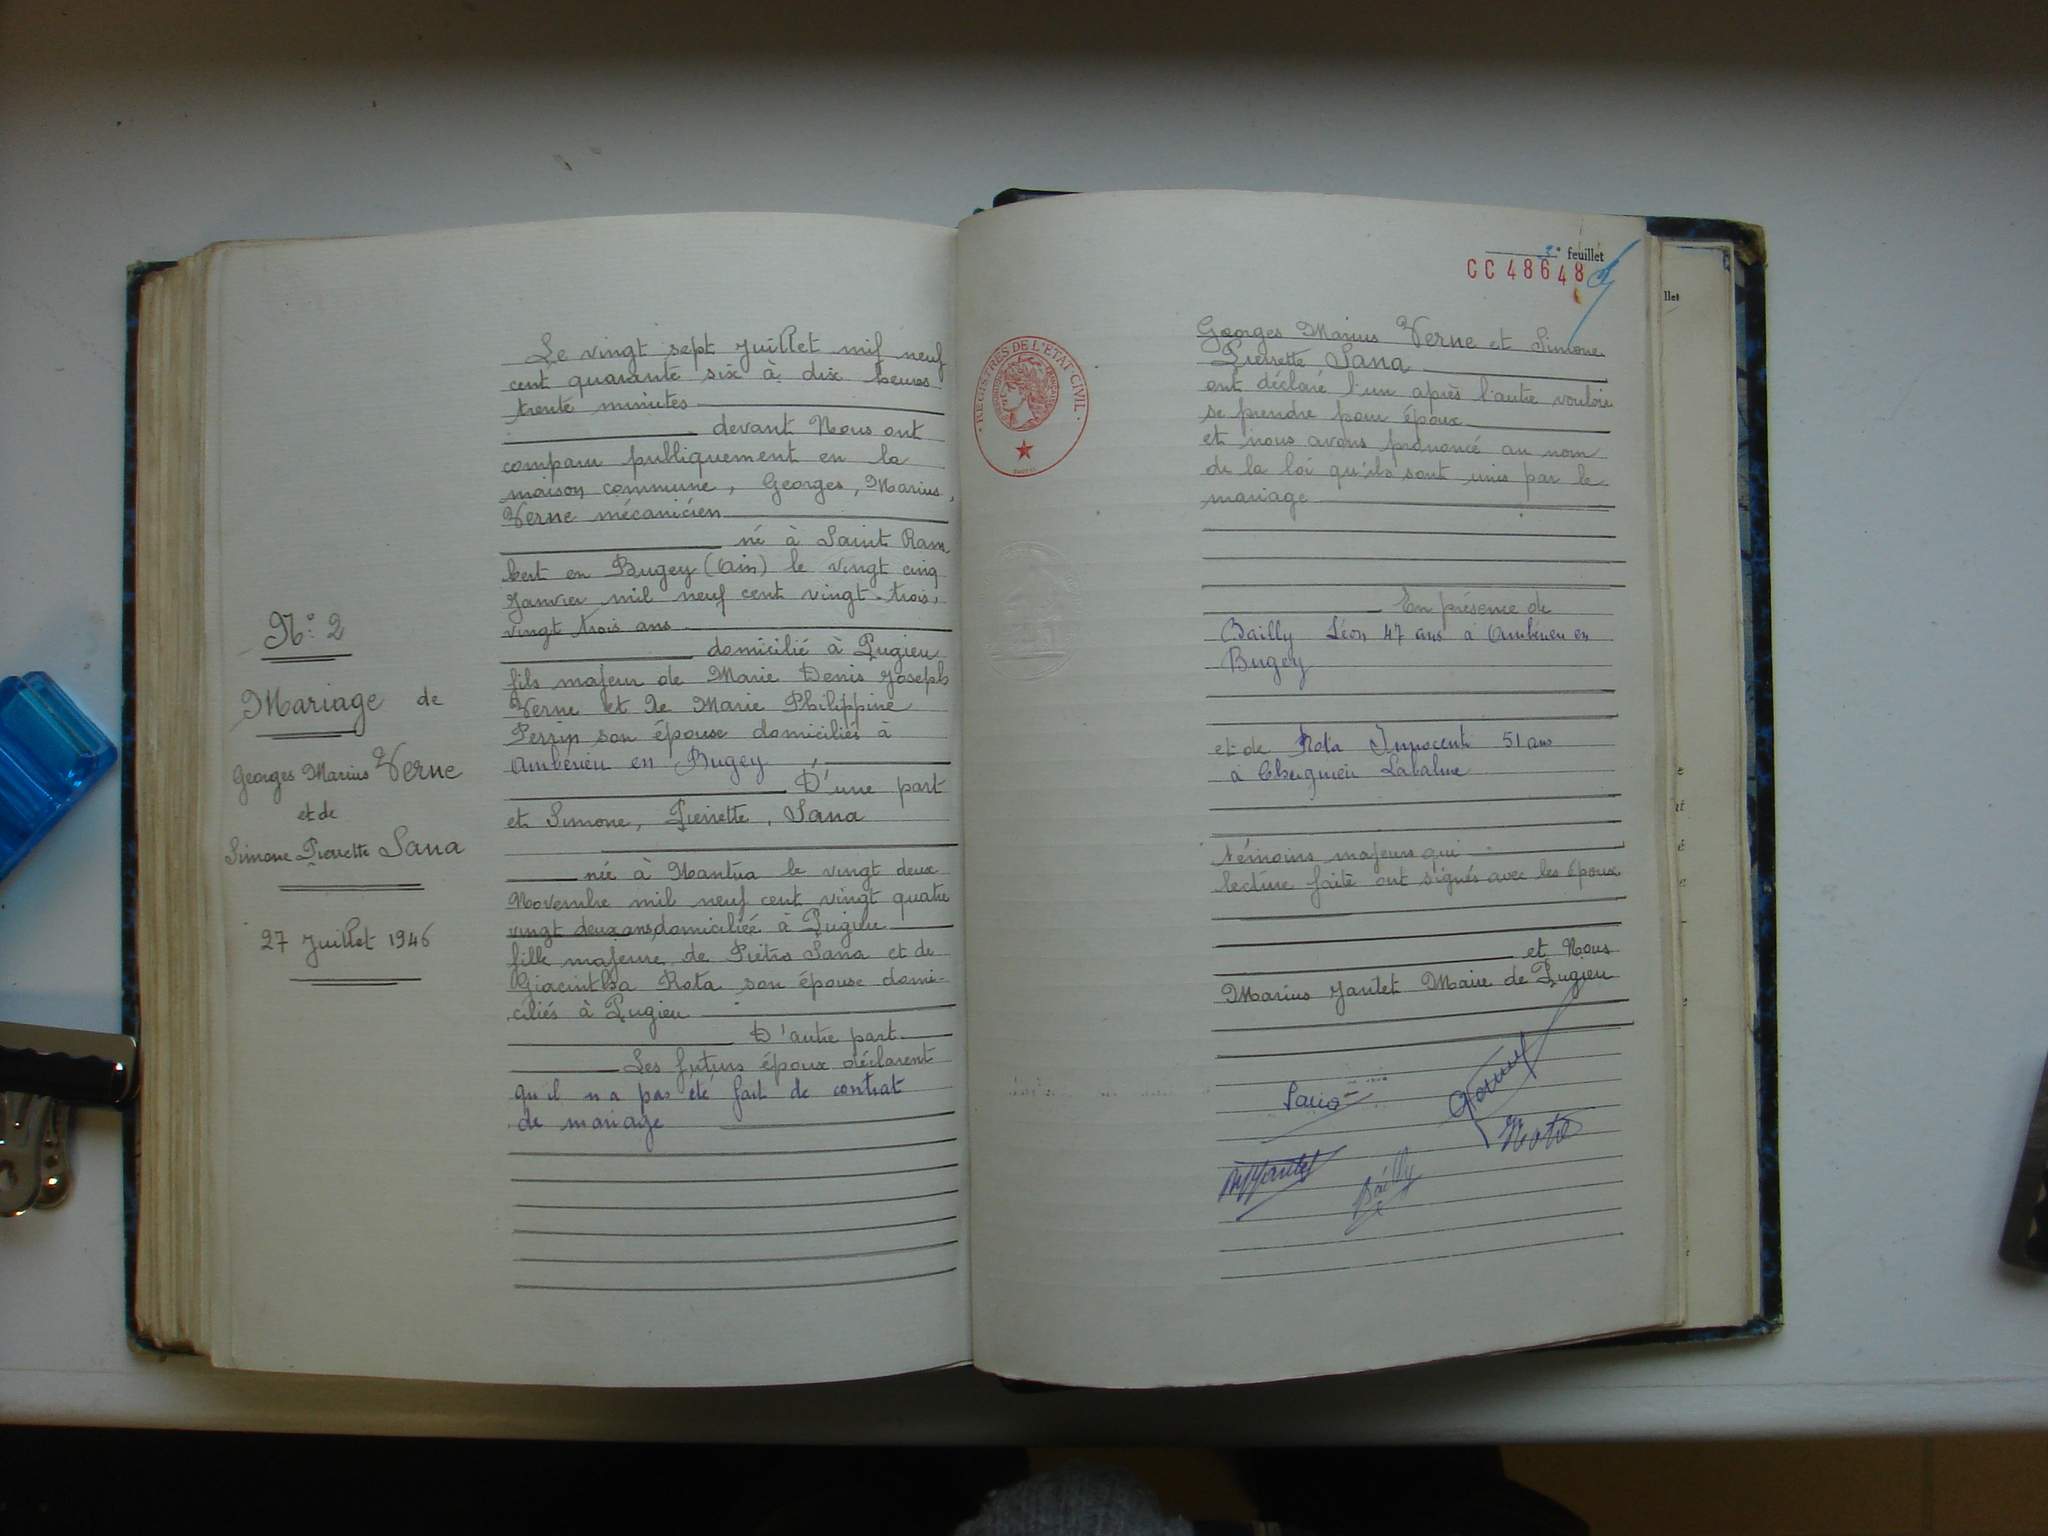 N° 2
Mariage de
Georges Marius Verne
et de
Simone Pierrette Sana
27 Juillet 1946
Le vingt sept Juillet mil neuf
cent quarante six à dix heures
trente minutes
devant Nous ont
comparu publiquement en la
maison commune, Georges, Marius,
Verne mécanicien
né à Saint Ram
bert en Bugey (Ain) le vingt cinq
Janvier mil neuf cent vingt-trois,
vingt trois ans
domicilié à Pugieu
fils majeur de Marie Denis Joseph
Verne et de Marie Philippine
Perrin son épouse domiciliés à
Ambérieu en Bugey
D'une part
et Simone, Pierrette, Sana
née à Nantua le vingt deux
Novembre mil neuf cent vingt quatre
vingt deux ans, domiciliée à Pugieu
fille majeure de Pietro Sana et de
Giacintha Rota son épouse domi-
ciliés à Pugieu
D'autre part
Les futurs époux déclarent
qu'il n'a pas été fait de contrat
de mariage
3e feuillet
CC 48648
REGISTRES DE L'ETAT-CIVIL
Georges Marius Verne et Simone
Pierrette Sana
ont déclaré l'un après l'autre vouloir
se prendre pour époux
et nous avons prononcé au nom
de la loi qu'ils sont unis par le
mariage
En présence de
Bailly Léon 47 ans à Ambérieu en
Bugey
et de Rota Innocent 51 ans
à
témoins majeurs qui
lecture faite ont signés avec les époux
et Nous
Marius Jantet Maire de Pugieu
Sana
Rota
Jantet
Bailly
llet